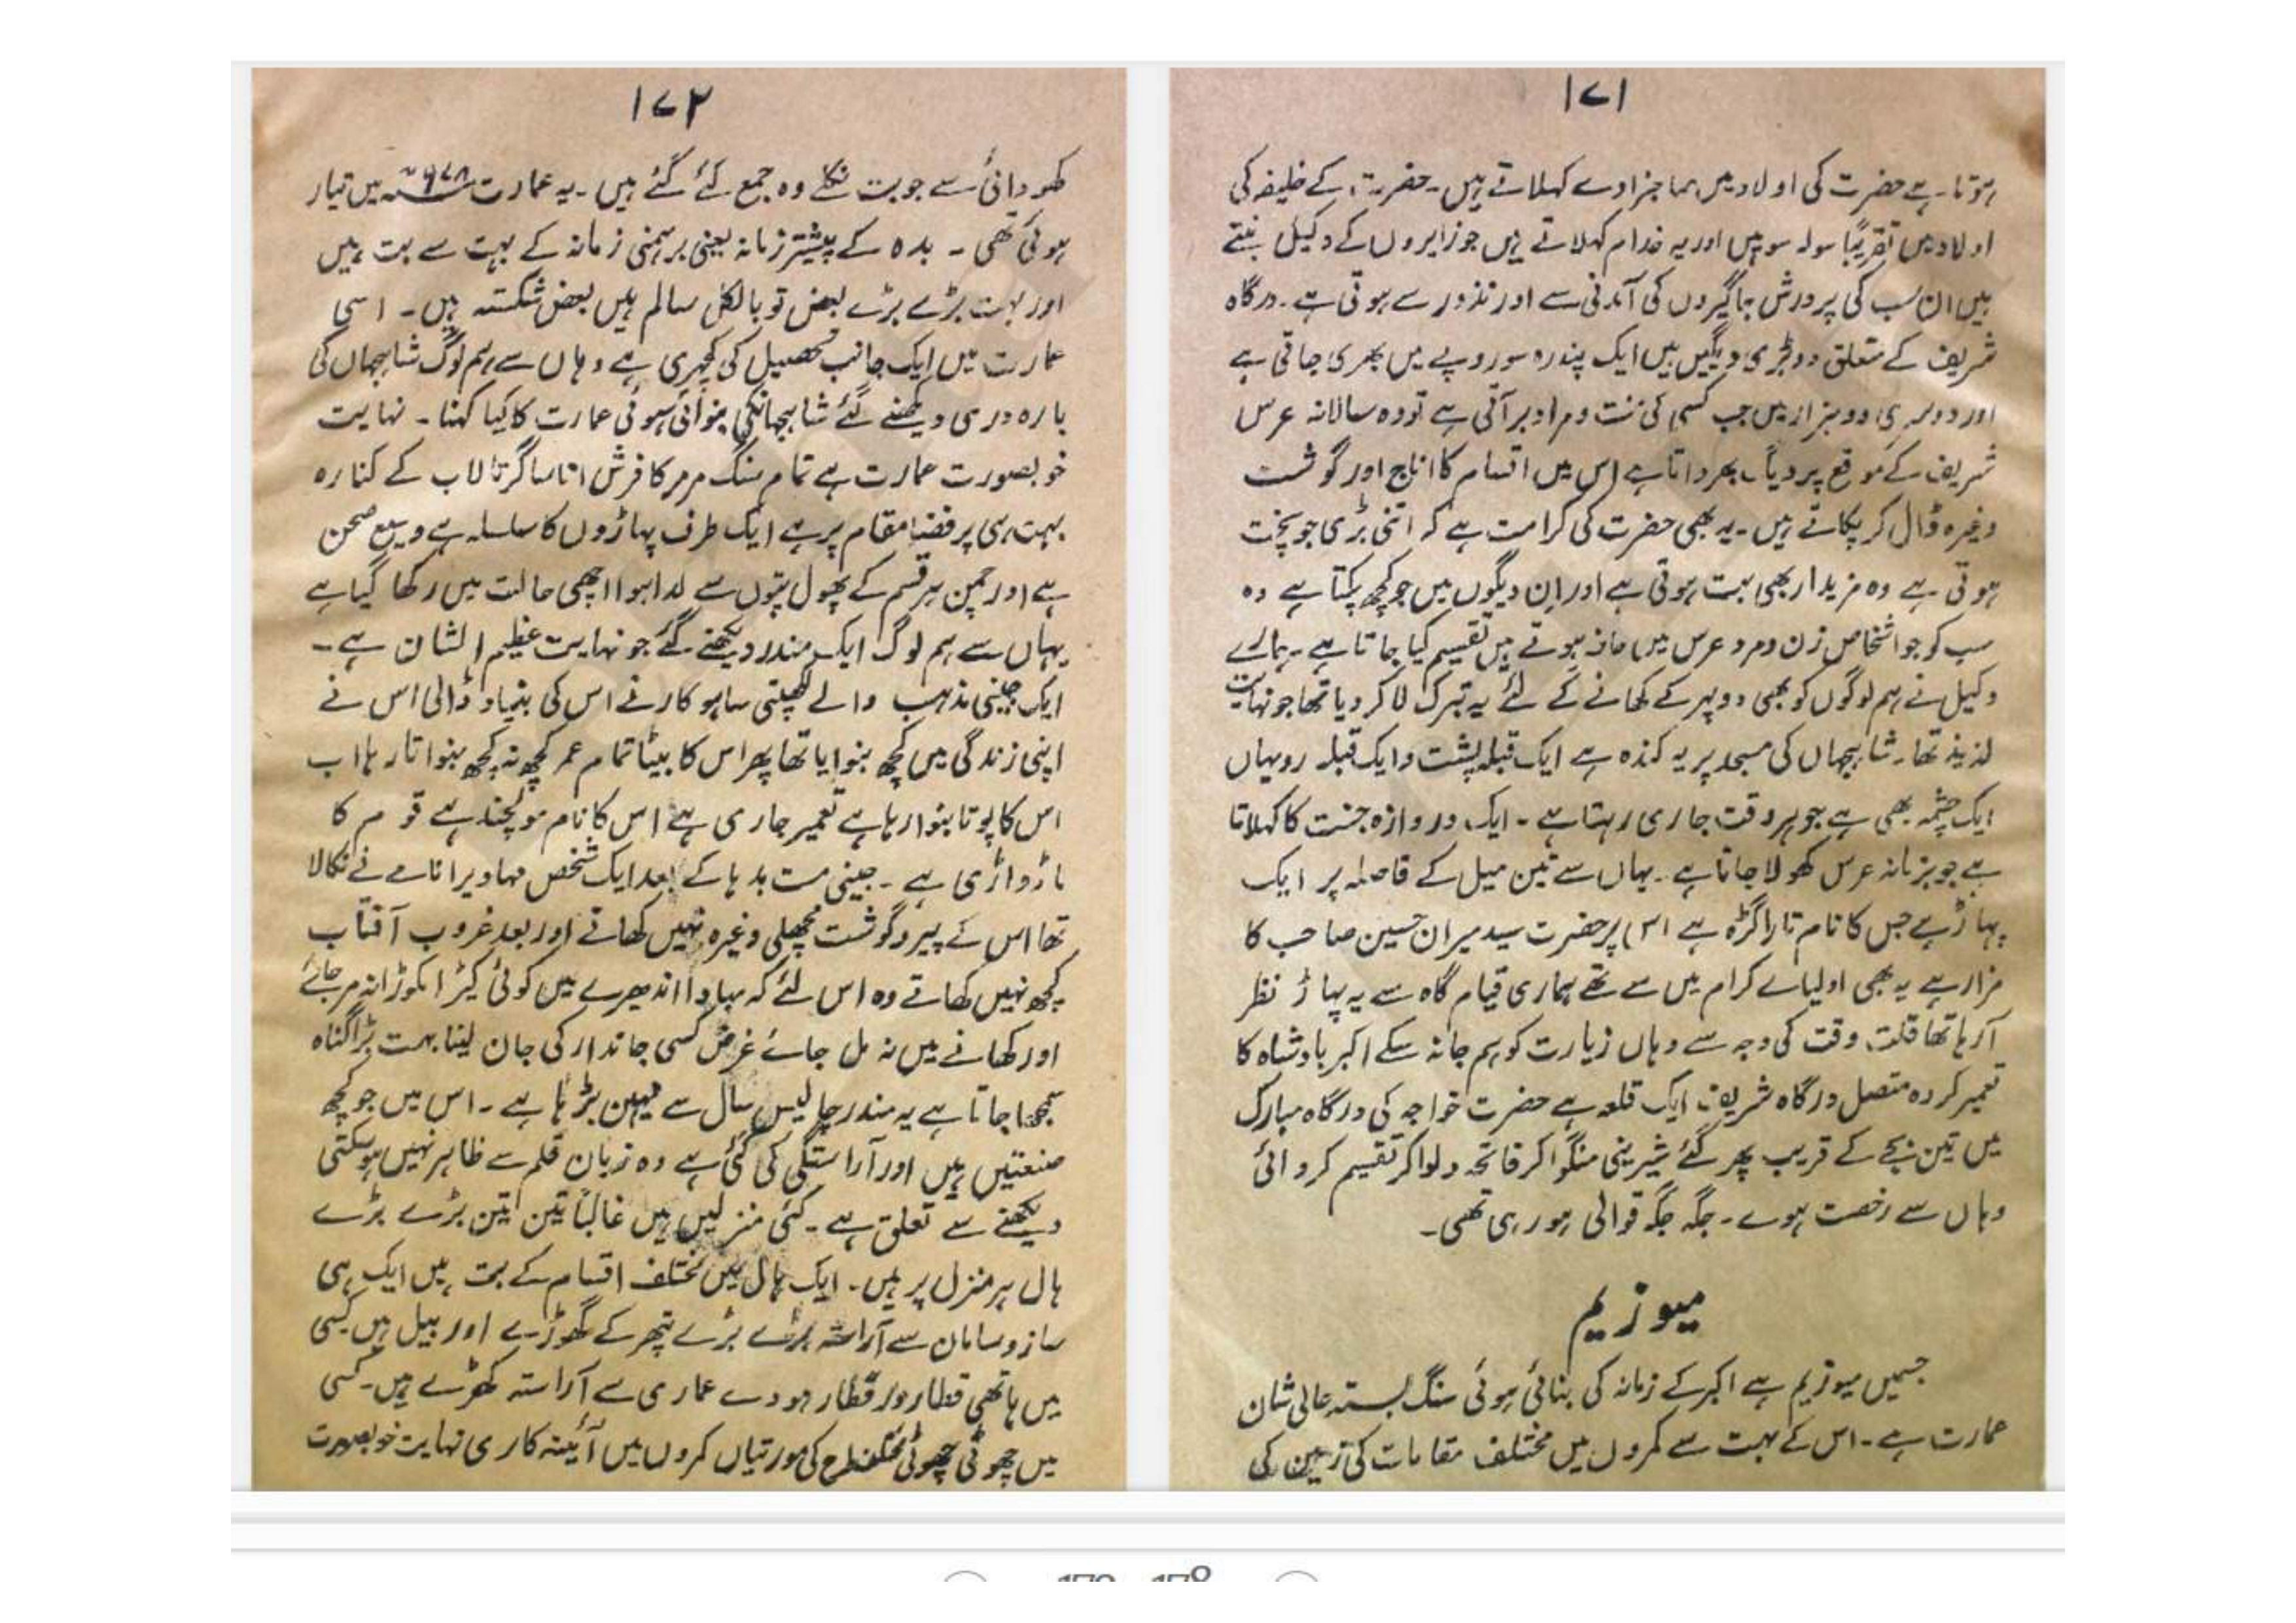 ۱۷۱
ہوتا ہے حضرت کی اولاد میں صاحبزادے کہلاتے ہیں۔ حضرت کے خلیفہ کی
اولاد میں تقریباً سولہ سو ہیں اور یہ خدام کہلاتے ہیں جو زایروں کے وکیل بنتے
ہیں ان سب کی پرورش جاگیروں کی آمدنی سے اور نذور سے ہوتی ہے۔ درگاہ
شریف کے متعلق دو بڑی دیگیں ہیں ایک پندرہ سو روپے میں بھری جاتی ہے
اور دوسری دو ہزار میں جب کسی کی منت و مراد بر آتی ہے تو وہ سالانہ عرس
شریف کے موقع پر دیگ بھرواتا ہے اس میں اقسام کا اناج اور گوشت
وغیرہ ڈال کر پکاتے ہیں۔ یہ بھی حضرت کی کرامت ہے کہ اتنی بڑی جو پخت
ہوتی ہے وہ مزیدار بھی بہت ہوتی ہے اور ان دیگوں میں جو کچھ پکتا ہے وہ
سب کو جو اشخاص زن و مرد عرس میں حاضر ہوتے ہیں تقسیم کیا جاتا ہے۔ ہمارے
وکیل نے ہم لوگوں کو بھی دوپہر کے کھانے کے لئے یہ تبرک لا کر دیا تھا جو نہایت
لذیذ تھا۔ شاہجہاں کی مسجد پر یہ کندہ ہے ایک قبلہ پشت و ایک قبلہ رو یہاں
ایک چشمہ بھی ہے جو ہر وقت جاری رہتا ہے۔ ایک دروازہ جنت کا کہلاتا
ہے جو بزمانہ عرس کھولا جاتا ہے۔ یہاں سے تین میل کے فاصلہ پر ایک
پہاڑ ہے جس کا نام تاراگڑہ ہے اس پر حضرت سید میران حسین صاحب کا
مزار ہے یہ بھی اولیاے کرام میں سے تھے ہماری قیام گاہ سے یہ پہاڑ نظر
آرہا تھا قلت وقت کی وجہ سے وہاں زیارت کو ہم جا نہ سکے اکبر بادشاہ کا
تعمیر کردہ متصل درگاہ شریف ایک قلعہ ہے حضرت خواجہ کی درگاہ مبارک
میں تین بجے کے قریب پھر گئے شیرینی منگوا کر فاتحہ دلوا کر تقسیم کروائی
وہاں سے رخصت ہوے۔ جگہ جگہ قوالی ہو رہی تھی۔
میوزیم
جسمیں میوزیم ہے اکبر کے زمانہ کی بنائی ہوئی سنگ بستہ عالی شان
عمارت ہے۔ اس کے بہت سے کمروں میں مختلف مقامات کی زمین کی
۱۷۲
کھودائی سے جو بت نکلے وہ جمع کئے گئے ہیں۔ یہ عمارت میں تیار
ہوئی تھی۔ بدہ کے پیشتر زمانہ یعنی برہمنی زمانہ کے بہت سے بت ہیں
اور بہت بڑے بڑے بعض تو بالکل سالم ہیں بعض شکستہ ہیں۔ اسی
عمارت میں ایک جانب تحصیل کی کچہری ہے وہاں سے ہم لوگ شاہجہاں کی
بارہ دری دیکھنے گئے شاہجہانکی بنوائی ہوئی عمارت کا کیا کہنا۔ نہایت
خوبصورت عمارت ہے تمام سنگ مرمر کا فرش اناساگر تالاب کے کنارہ
بہت ہی پر فضا مقام پر ہے ایک طرف پہاڑوں کا سلسلہ ہے وسیع صحن
ہے اور چمن ہر قسم کے پھول پتوں سے لدا ہوا اچھی حالت میں رکھا گیا ہے
یہاں سے ہم لوگ ایک مندر دیکھنے گئے جو نہایت عظیم الشان ہے۔
ایک جینی مذہب والے لکھپتی ساہوکار نے اس کی بنیاد ڈالی اس نے
اپنی زندگی میں کچھ بنوایا تھا پھر اس کا بیٹا تمام عمر کچھ نہ کچھ بنواتا رہا اب
اس کا پوتا بنوا رہا ہے تعمیر جاری ہے اس کا نام مولچند ہے قوم کا
ماڑواڑی ہے۔ جینی مت بدہا کے بعد ایک شخص مہاویرا نامے نے نکالا
تھا اس کے پیرو گوشت مچھلی وغیرہ نہیں کھاتے اور بعد غروب آفتاب
کچھ نہیں کھاتے وہ اس لئے کہ مبادا اندھیرے میں کوئی کیڑا مکوڑا نہ مر جائے
اور کھانے میں نہ مل جاے غرض کسی جاندار کی جان لینا بہت بڑا گناہ
سمجھا جاتا ہے یہ مندر چالیس سال سے یہیں بڑہا ہے۔ اس میں جو کچھ
صنعتیں ہیں اور آراستگی کی گئی ہے وہ زبان قلم سے ظاہر نہیں ہوسکتی
دیکھنے سے تعلق ہے۔ کئی منزلیں ہیں غالباً تین تین بڑے بڑے
ہال ہر منزل پر ہیں۔ ایک ہال میں مختلف اقسام کے بت ہیں ایک ہی
ساز و سامان سے آراستہ بڑے بڑے پتھر کے گھوڑے اور بیل ہیں کسی
میں ہاتھی قطار در قطار ہودے عماری سے آراستہ کھڑے ہیں۔ کسی
میں چھوٹی چھوٹی مختلف طرح کی مورتیاں کمروں میں آئینہ کاری نہایت خوبصورت